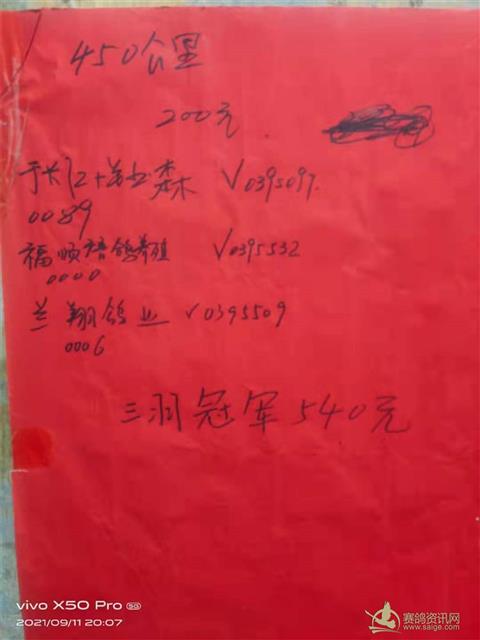 450公里
200元
于长江+姜森 V0395097.
0089
福顺语鸽养殖 V0395532
0000
兰翔鸽业 V0395509
0006
三羽冠军540元
vivo X50 Pro 5G
2021/09/11 20:07
赛鸽资讯网
www.saige.com